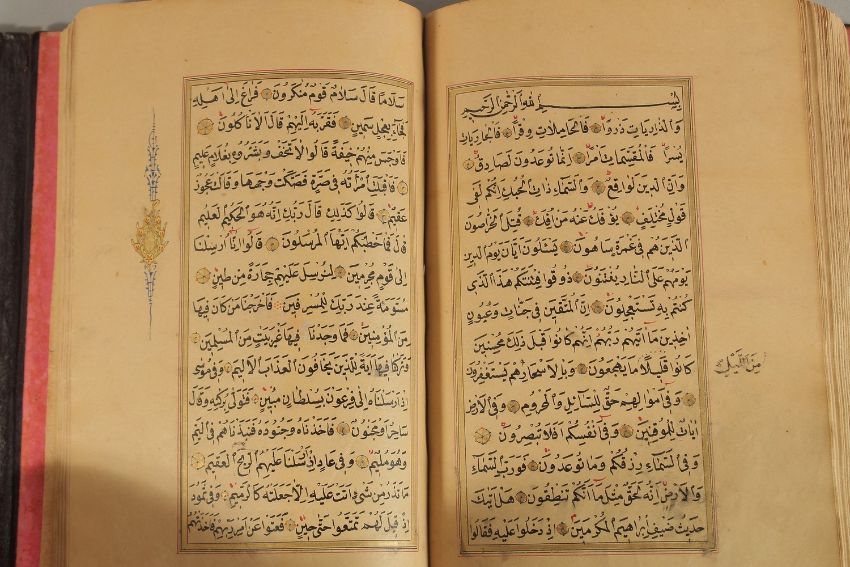 بِسْمِ اللهِ الرَّحْمٰنِ الرَّحِيمِ
وَالذَّارِيَاتِ ذَرْوًا فَالْحَامِلَاتِ وِقْرًا فَالْجَارِيَاتِ
يُسْرًا فَالْمُقَسِّمَاتِ اَمْرًا اِنَّمَا تُوعَدُونَ لَصَادِقٌ
وَاِنَّ الدِّينَ لَوَاقِعٌ وَالسَّمَاءِ ذَاتِ الْحُبُكِ اِنَّكُمْ لَفِي
قَوْلٍ مُخْتَلِفٍ يُؤْفَكُ عَنْهُ مَنْ اُفِكَ قُتِلَ الْخَرَّاصُونَ
الَّذِينَ هُمْ فِي غَمْرَةٍ سَاهُونَ يَسْئَلُونَ اَيَّانَ يَوْمُ الدِّينِ
يَوْمَ هُمْ عَلَى النَّارِ يُفْتَنُونَ ذُوقُوا فِتْنَتَكُمْ هٰذَا الَّذِي
كُنْتُمْ بِهِ تَسْتَعْجِلُونَ اِنَّ الْمُتَّقِينَ فِي جَنَّاتٍ وَعُيُونٍ
اٰخِذِينَ مَا اٰتٰيهُمْ رَبُّهُمْ اِنَّهُمْ كَانُوا قَبْلَ ذٰلِكَ مُحْسِنِينَ
كَانُوا قَلِيلًا مَا يَهْجَعُونَ وَبِالْاَسْحَارِ هُمْ يَسْتَغْفِرُونَ
مِنَ الَّيْلِ
وَفِي اَمْوَالِهِمْ حَقٌّ لِلسَّائِلِ وَالْمَحْرُومِ وَفِي الْاَرْضِ
اٰيَاتٌ لِلْمُوقِنِينَ وَفِي اَنْفُسِكُمْ اَفَلَا تُبْصِرُونَ
وَفِي السَّمَاءِ رِزْقُكُمْ وَمَا تُوعَدُونَ فَوَرَبِّ السَّمَاءِ
وَالْاَرْضِ اِنَّهُ لَحَقٌّ مِثْلَ مَا اَنَّكُمْ تَنْطِقُونَ هَلْ اَتٰيكَ
حَدِيثُ ضَيْفِ اِبْرَاهِيمَ الْمُكْرَمِينَ اِذْ دَخَلُوا عَلَيْهِ فَقَالُوا
سَلَامًا قَالَ سَلَامٌ قَوْمٌ مُنْكَرُونَ فَرَاغَ اِلٰى اَهْلِهِ
فَجَاءَ بِعِجْلٍ سَمِينٍ فَقَرَّبَهُ اِلَيْهِمْ قَالَ اَلَا تَأْكُلُونَ
فَاَوْجَسَ مِنْهُمْ خِيفَةً قَالُوا لَا تَخَفْ وَبَشَّرُوهُ بِغُلَامٍ عَلِيمٍ
فَاَقْبَلَتِ امْرَاَتُهُ فِي صَرَّةٍ فَصَكَّتْ وَجْهَهَا وَقَالَتْ عَجُوزٌ
عَقِيمٌ قَالُوا كَذٰلِكِ قَالَ رَبُّكِ اِنَّهُ هُوَ الْحَكِيمُ الْعَلِيمُ
قَالَ فَمَا خَطْبُكُمْ اَيُّهَا الْمُرْسَلُونَ قَالُوا اِنَّا اُرْسِلْنَا
اِلٰى قَوْمٍ مُجْرِمِينَ لِنُرْسِلَ عَلَيْهِمْ حِجَارَةً مِنْ طِينٍ
مُسَوَّمَةً عِنْدَ رَبِّكَ لِلْمُسْرِفِينَ فَاَخْرَجْنَا مَنْ كَانَ فِيهَا
مِنَ الْمُؤْمِنِينَ فَمَا وَجَدْنَا فِيهَا غَيْرَ بَيْتٍ مِنَ الْمُسْلِمِينَ
وَتَرَكْنَا فِيهَا اٰيَةً لِلَّذِينَ يَخَافُونَ الْعَذَابَ الْاَلِيمَ وَفِي مُوسٰى
اِذْ اَرْسَلْنَاهُ اِلٰى فِرْعَوْنَ بِسُلْطَانٍ مُبِينٍ فَتَوَلّٰى بِرُكْنِهِ وَقَالَ
سَاحِرٌ اَوْ مَجْنُونٌ فَاَخَذْنَاهُ وَجُنُودَهُ فَنَبَذْنَاهُمْ فِي الْيَمِّ
وَهُوَ مُلِيمٌ وَفِي عَادٍ اِذْ اَرْسَلْنَا عَلَيْهِمُ الرِّيحَ الْعَقِيمَ
مَا تَذَرُ مِنْ شَيْءٍ اَتَتْ عَلَيْهِ اِلَّا جَعَلَتْهُ كَالرَّمِيمِ وَفِي ثَمُودَ
اِذْ قِيلَ لَهُمْ تَمَتَّعُوا حَتّٰى حِينٍ فَعَتَوْا عَنْ اَمْرِ رَبِّهِمْ فَاَخَذَتْهُمُ